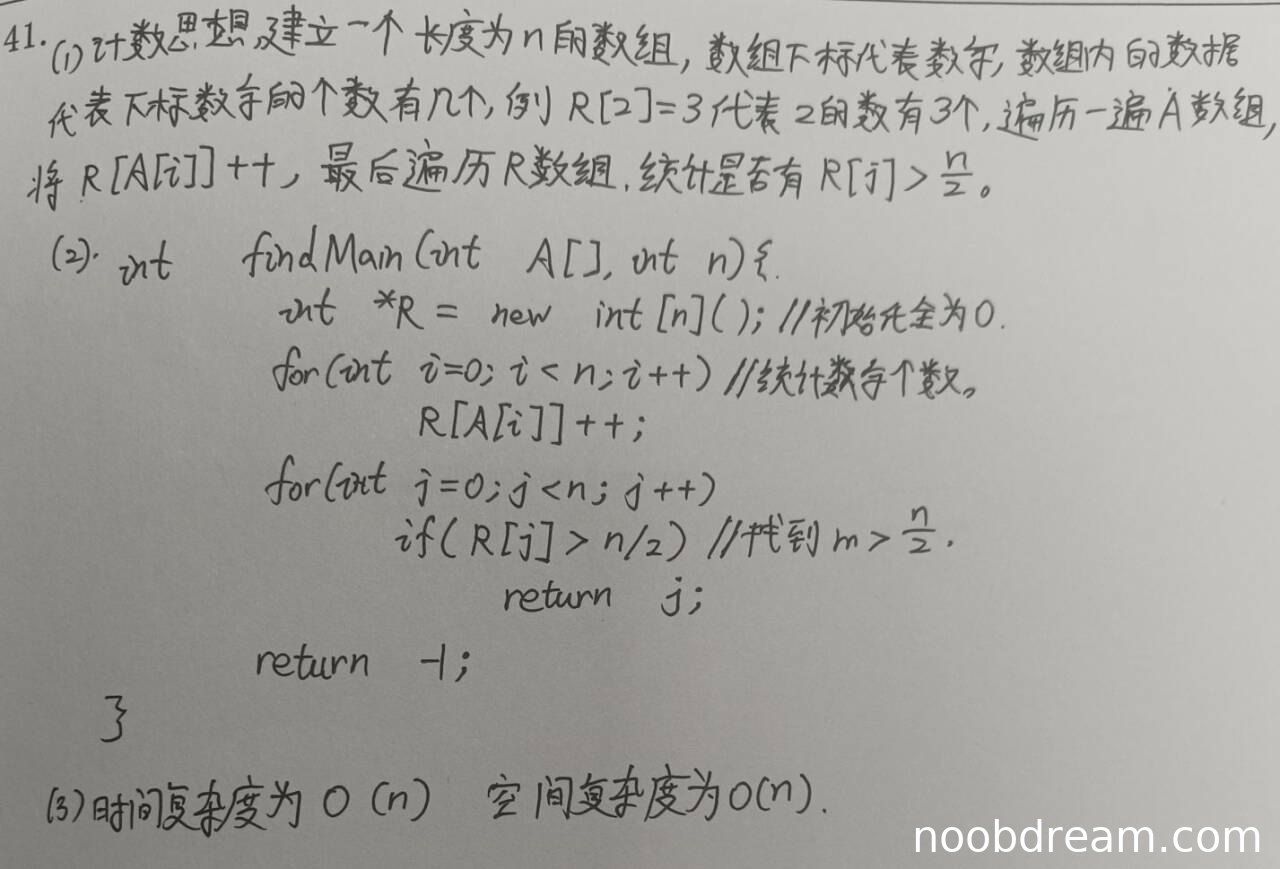 41. (1)计数思想,建立一个长度为n的数组,数组下标代表数字,数组内的数据
代表下标数字的个数有几个,例 R[2]=3代表2的数有3个,遍历一遍A数组,
将 R[A[i]]++,最后遍历R数组,统计是否有 R[j]>n/2。
(2). int findMain(int A[], int n){
int *R = new int[n](); //初始化全为0.
for(int i=0; i<n; i++) //统计数字个数。
R[A[i]]++;
for(int j=0; j<n; j++)
if(R[j]>n/2) //找到m>n/2.
return j;
return -1;
}
(3)时间复杂度为O(n) 空间复杂度为O(n).
noobdream.com